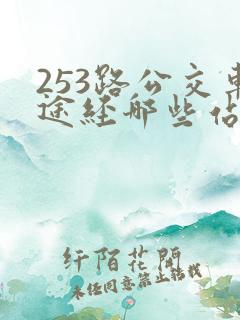 253路公交車
途经那些佔
纤陌花開
未经同意禁止转载